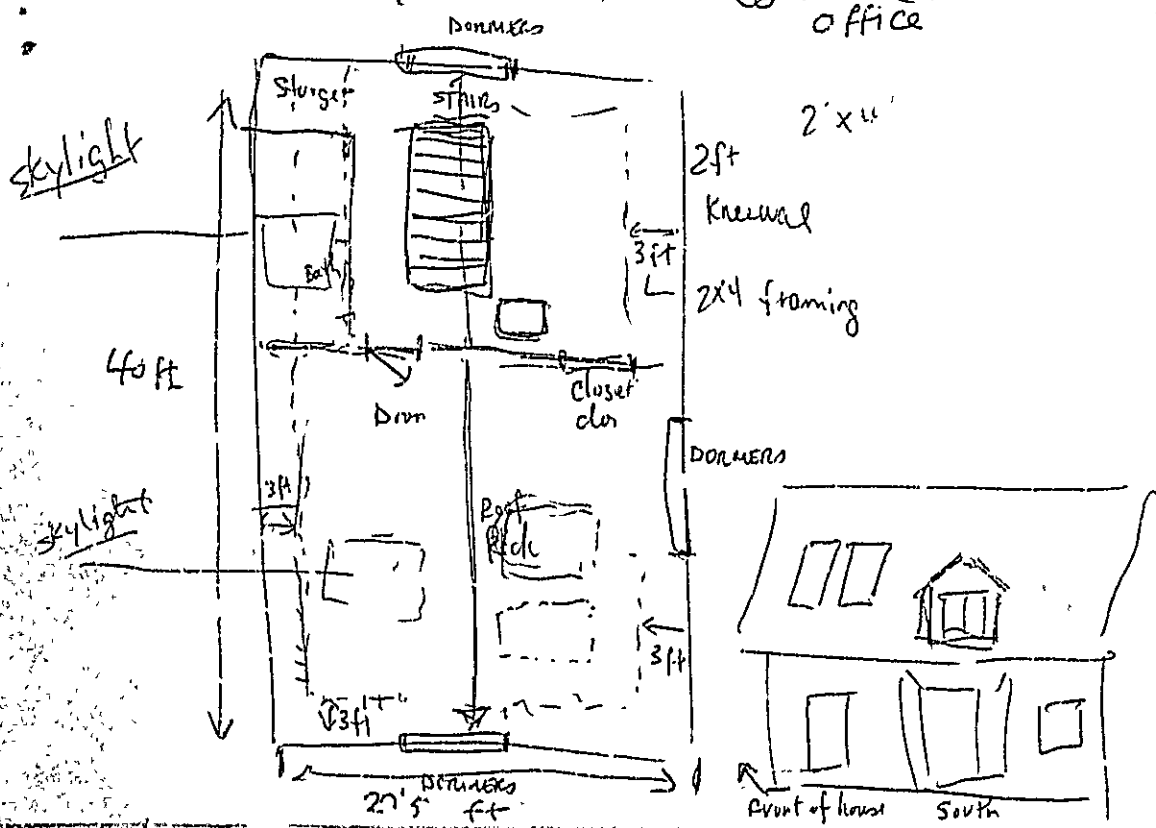 office
DORMERS
Storge
STAIRS
2' x 4'
skylight
2ft
Kneewal
3ft
Bath
2x4 framing
40 ft
Door
Closet
dor
DORMERS
3ft
skylight
Roof
3ft
3ft
DORMERS
ft
Front of house
South